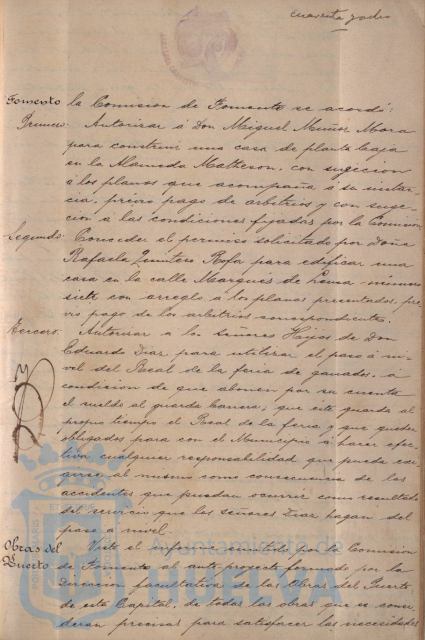 cuarenta y ocho
Fomento la Comision de Fomento se acordó:
Primero. Autorizar á Don Miguel Muñoz Mora
para construir una casa de planta baja
en la Alameda Matheson, con sugecion
á los planos que acompaña á su instan-
cia, previo pago de arbitrios y con suge-
cion á las condiciones fijadas por la Comision
Segundo. Conceder el permiso solicitado por Doña
Rafaela Quintero Rofa para edificar una
casa en la calle Marqués de Lema número
siete con arreglo á los planos presentados, pre-
vio pago de los arbitrios correspondientes.
Tercero. Autorizar a los señores Hijos de Don
Eduardo Diaz para utilizar el paso á ni-
vel del Real de la feria de ganados, á
condicion de que abonen por su cuenta
el sueldo al guarda barrera, que este guarda al
propio tiempo el Real de la feria y que queden
obligados para con el Municipio á hacer efec-
tiva cualquier responsabilidad que pueda exi-
girse al mismo como consecuencia de los
accidentes que puedan ocurrir como resultado
del servicio que los señores Diaz hagan del
paso a nivel.
Obras del Visto el informe emitido por la Comision
Puerto de Fomento al ante proyecto formado por la
Direccion facultativa de las Obras del Puerto
de esta Capital, de todas las obras que se consi-
deran precisas para satisfacer las necesidades
Ayuntamiento de
HUELVA